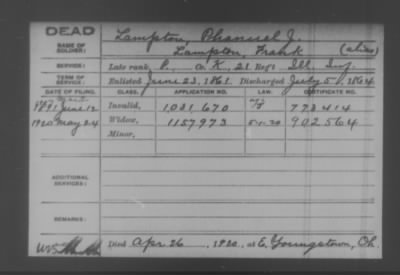 DEAD
NAME OF SOLDIER: Lampton, Phanuel J.
Lampton, Frank (alias)
SERVICE: Late rank, P., Co. K, 21 Reg't Ill. Inf.
TERM OF SERVICE: Enlisted June 23, 1861. Discharged July 5, 1864
DATE OF FILING. CLASS. APPLICATION NO. LAW. CERTIFICATE NO.
1891 June 12 Invalid, 1031670 773414
1920 May 24 Widow, 1157973 5-1-20 902564
Minor,
ADDITIONAL SERVICES:
REMARKS:
Died Apr. 26, 1920, at E. Youngstown, Oh.